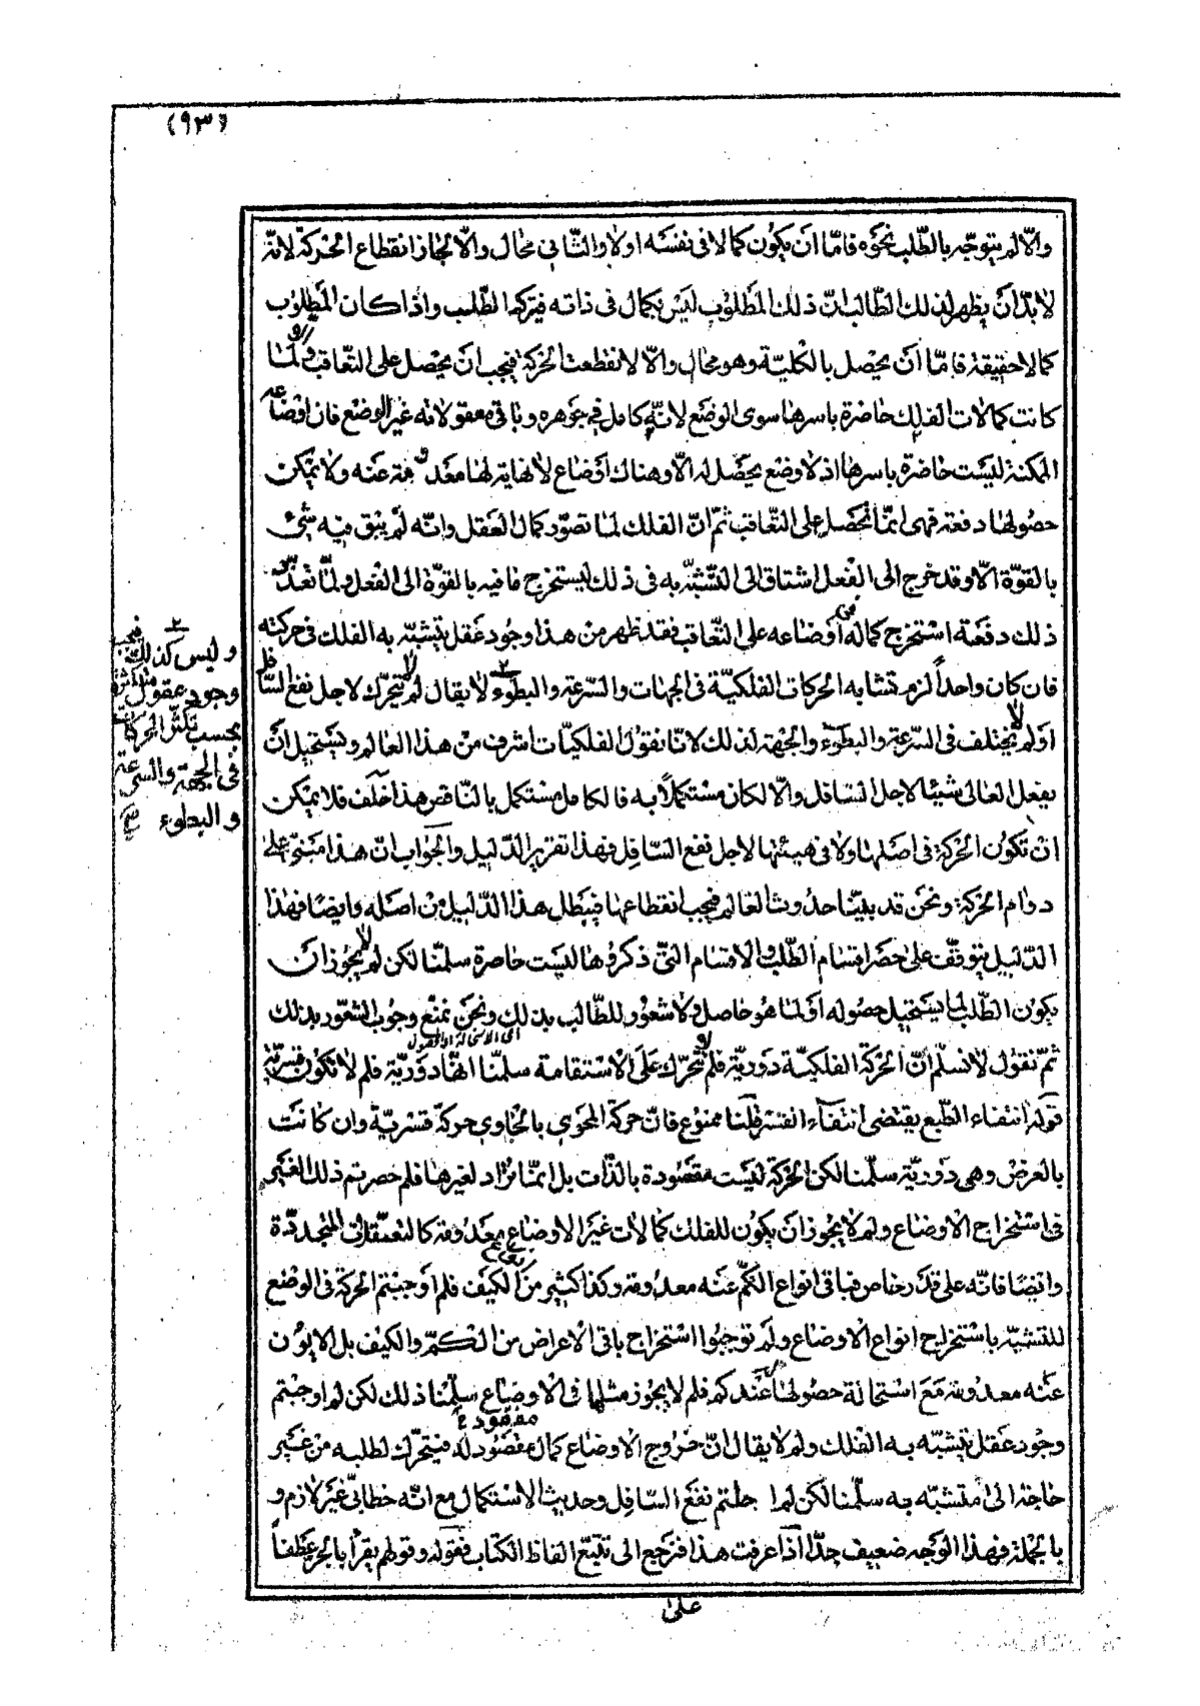 (٩٣)
والّا لم يتوجّه بالطّلب نحوه فامّا ان يكون كمالا فى نفسه اولا والثّانى محال والّا لجاز انقطاع الحركة لانّه
لا بدّ ان يظهر لذلك الطّالب انّ ذلك المطلوب ليس بكمال فى ذاته فيترك الطّلب واذا كان المطلوب
كمالا حقيقة فامّا ان يحصل بالكليّة وهو محال والّا لانقطعت الحركة فيجب ان يحصل على التّعاقب ولمّا
كانت كمالات الفلك حاضرة باسرها سوى الوضع لانّه كامل فى جوهره وباقى مقولاته غير الوضع فان اوضاعه
الممكنة ليست حاضرة باسرها اذ لا وضع يحصل له الّا وهناك اوضاع لا نهاية لها معدومة عنه ولا يمكن
حصولها دفعة فهى انّما تحصل على التّعاقب ثمّ انّ الفلك لما تصوّر كمال العقل وانّه لم يبق فيه شئ
بالقوّة الّا وقد خرج الى الفعل اشتاق الى التشبّه به فى ذلك ليستخرج ما فيه بالقوّة الى الفعل ولمّا تعذّر
ذلك دفعة استخرج كماله فى اوضاعه على التّعاقب فقد ظهر من هذا وجود عقل يتشبّه به الفلك فى حركته
فان كان واحداً لزم تشابه الحركات الفلكيّة فى الجهات والسّرعة والبطوء ٢ لا يقال لم لا تتحرّك لاجل نفع السّافل
او لم لا يختلف فى السّرعة والبطوء والجهة لذلك لانّا نقول الفلكيّات اشرف من هذا العالم ويستحيل ان
يفعل العالى شيئا لاجل السّافل والّا لكان مستكملاً به فالكامل مستكمل بالنّاقص هذا خلف فلا يمكن
ان تكون الحركة فى اصلها ولا فى هيئتها لاجل نفع السّافل فهذا تقرير الدّليل والجواب انّ هذا مبنىّ على
دوام الحركة ونحن قد بيّنا حدوث العالم فيجب انقطاعها فيبطل هذا الدّليل من اصله وايضا فهذا
الدّليل يتوقّف على حصر اقسام الطّلب والاقسام التى ذكروها ليست حاصرة سلّمنا لكن لم لا يجوز ان
يكون الطّلب لما يستحيل حصوله او لما هو حاصل ولا شعور للطّالب بذلك ونحن نمنع وجوب الشعور بذلك
اى الاستحالة او الحصول
ثمّ نقول لا نسلّم انّ الحركة الفلكيّة دوريّة فلم لا تتحرّك على الاستقامة سلّمنا انّها دوريّة فلم لا تكون قسريّة
قوله انتفاء الطّبع يقتضى انتفاء القسر قلنا ممنوع فانّ حركة المحوى بالحاوى حركة قسريّة وان كانت
بالعرض وهى دوريّة سلّمنا لكن الحركة ليست مقصودة بالذّات بل انّما تراد لغيرها فلم حصرتم ذلك الغير
فى استخراج الاوضاع ولم لا يجوز ان يكون للفلك كمالات غير الاوضاع معدومة كالتعقّلات المتجدّدة
وايضا فانّه على قدر خاص فباقى انواع الكمّ عنه معدومة وكذا كثير من الكيف فلم اوجبتم الحركة فى الوضع
للتشبّه باستخراج انواع الاوضاع ولم توجبوا استخراج باقى الاعراض من الكمّ والكيف بل الايون
عنه معدومة مع استحالة حصولها عندكم فلم لا يجوز مثلها فى الاوضاع سلّمنا ذلك لكن لم اوجبتم
وجود عقل يتشبّه به الفلك ولم لا يقال انّ خروج الاوضاع كمال مقصود له فيتحرّك لطلبه من غير
مفقود
حاجة الى متشبّه به سلّمنا لكن لم احلتم نفع السّافل وحديث الاستكمال مع انّه خطابىّ غير لازم و
بالجملة فهذا الوجه ضعيف جدّا اذا عرفت هذا فنرجع الى تتبّع الفاظ الكتاب فقوله وقولهم يقرأ بالجر عطفاً
على
٢
وليس كذلك فيجب
وجود عقول متكثرة
بحسب تكثّر الحركات
فى الجهة والسرعة
والبطوء